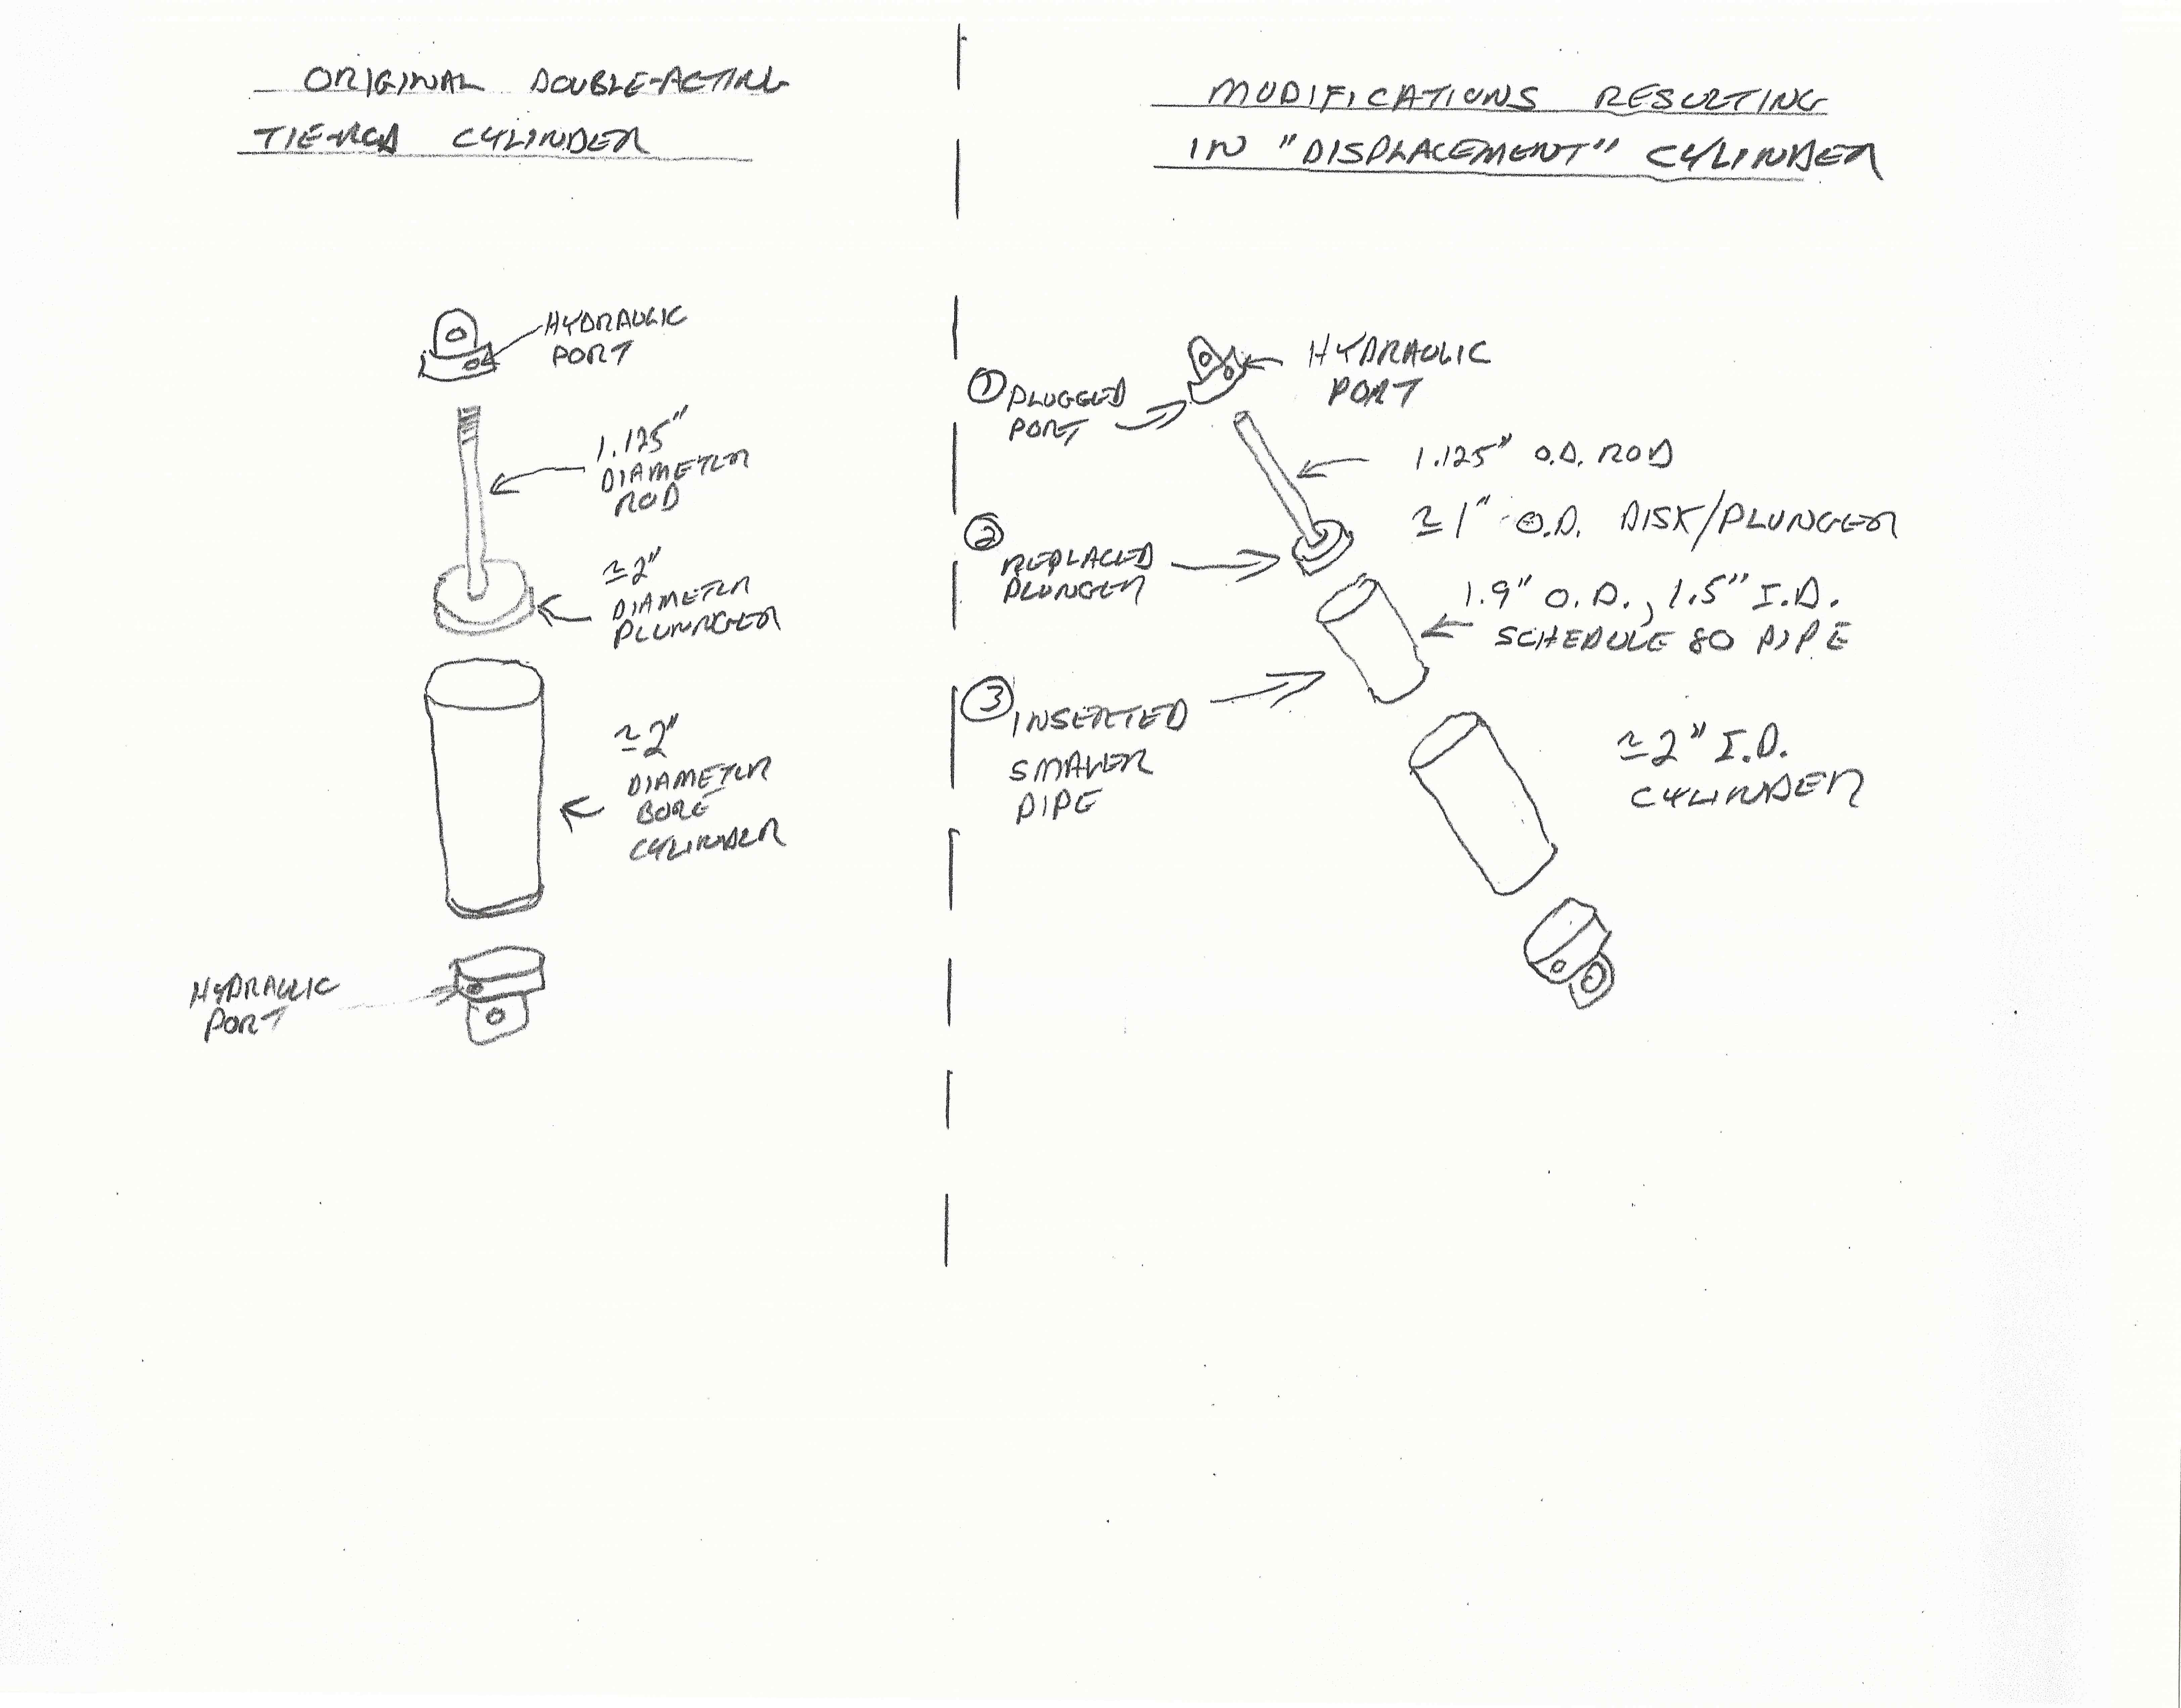 ORIGINAL DOUBLE-ACTING
TIE-ROD CYLINDER
HYDRAULIC
PORT
1.125"
DIAMETER
ROD
≃2"
DIAMETER
PLUNNGER
≃2"
DIAMETER
BORE
CYLINDER
HYDRAULIC
PORT
MODIFICATIONS RESULTING
IN "DISPLACEMENT" CYLINDER
HYDRAULIC
PORT
① PLUGGED
PORT
1.125" O.D. ROD
≃1" O.D. DISK/PLUNGER
② REPLACED
PLUNGER
1.9" O.D., 1.5" I.D.
SCHEDULE 80 PIPE
③ INSERTED
SMALLER
PIPE
≃2" I.D.
CYLINDER